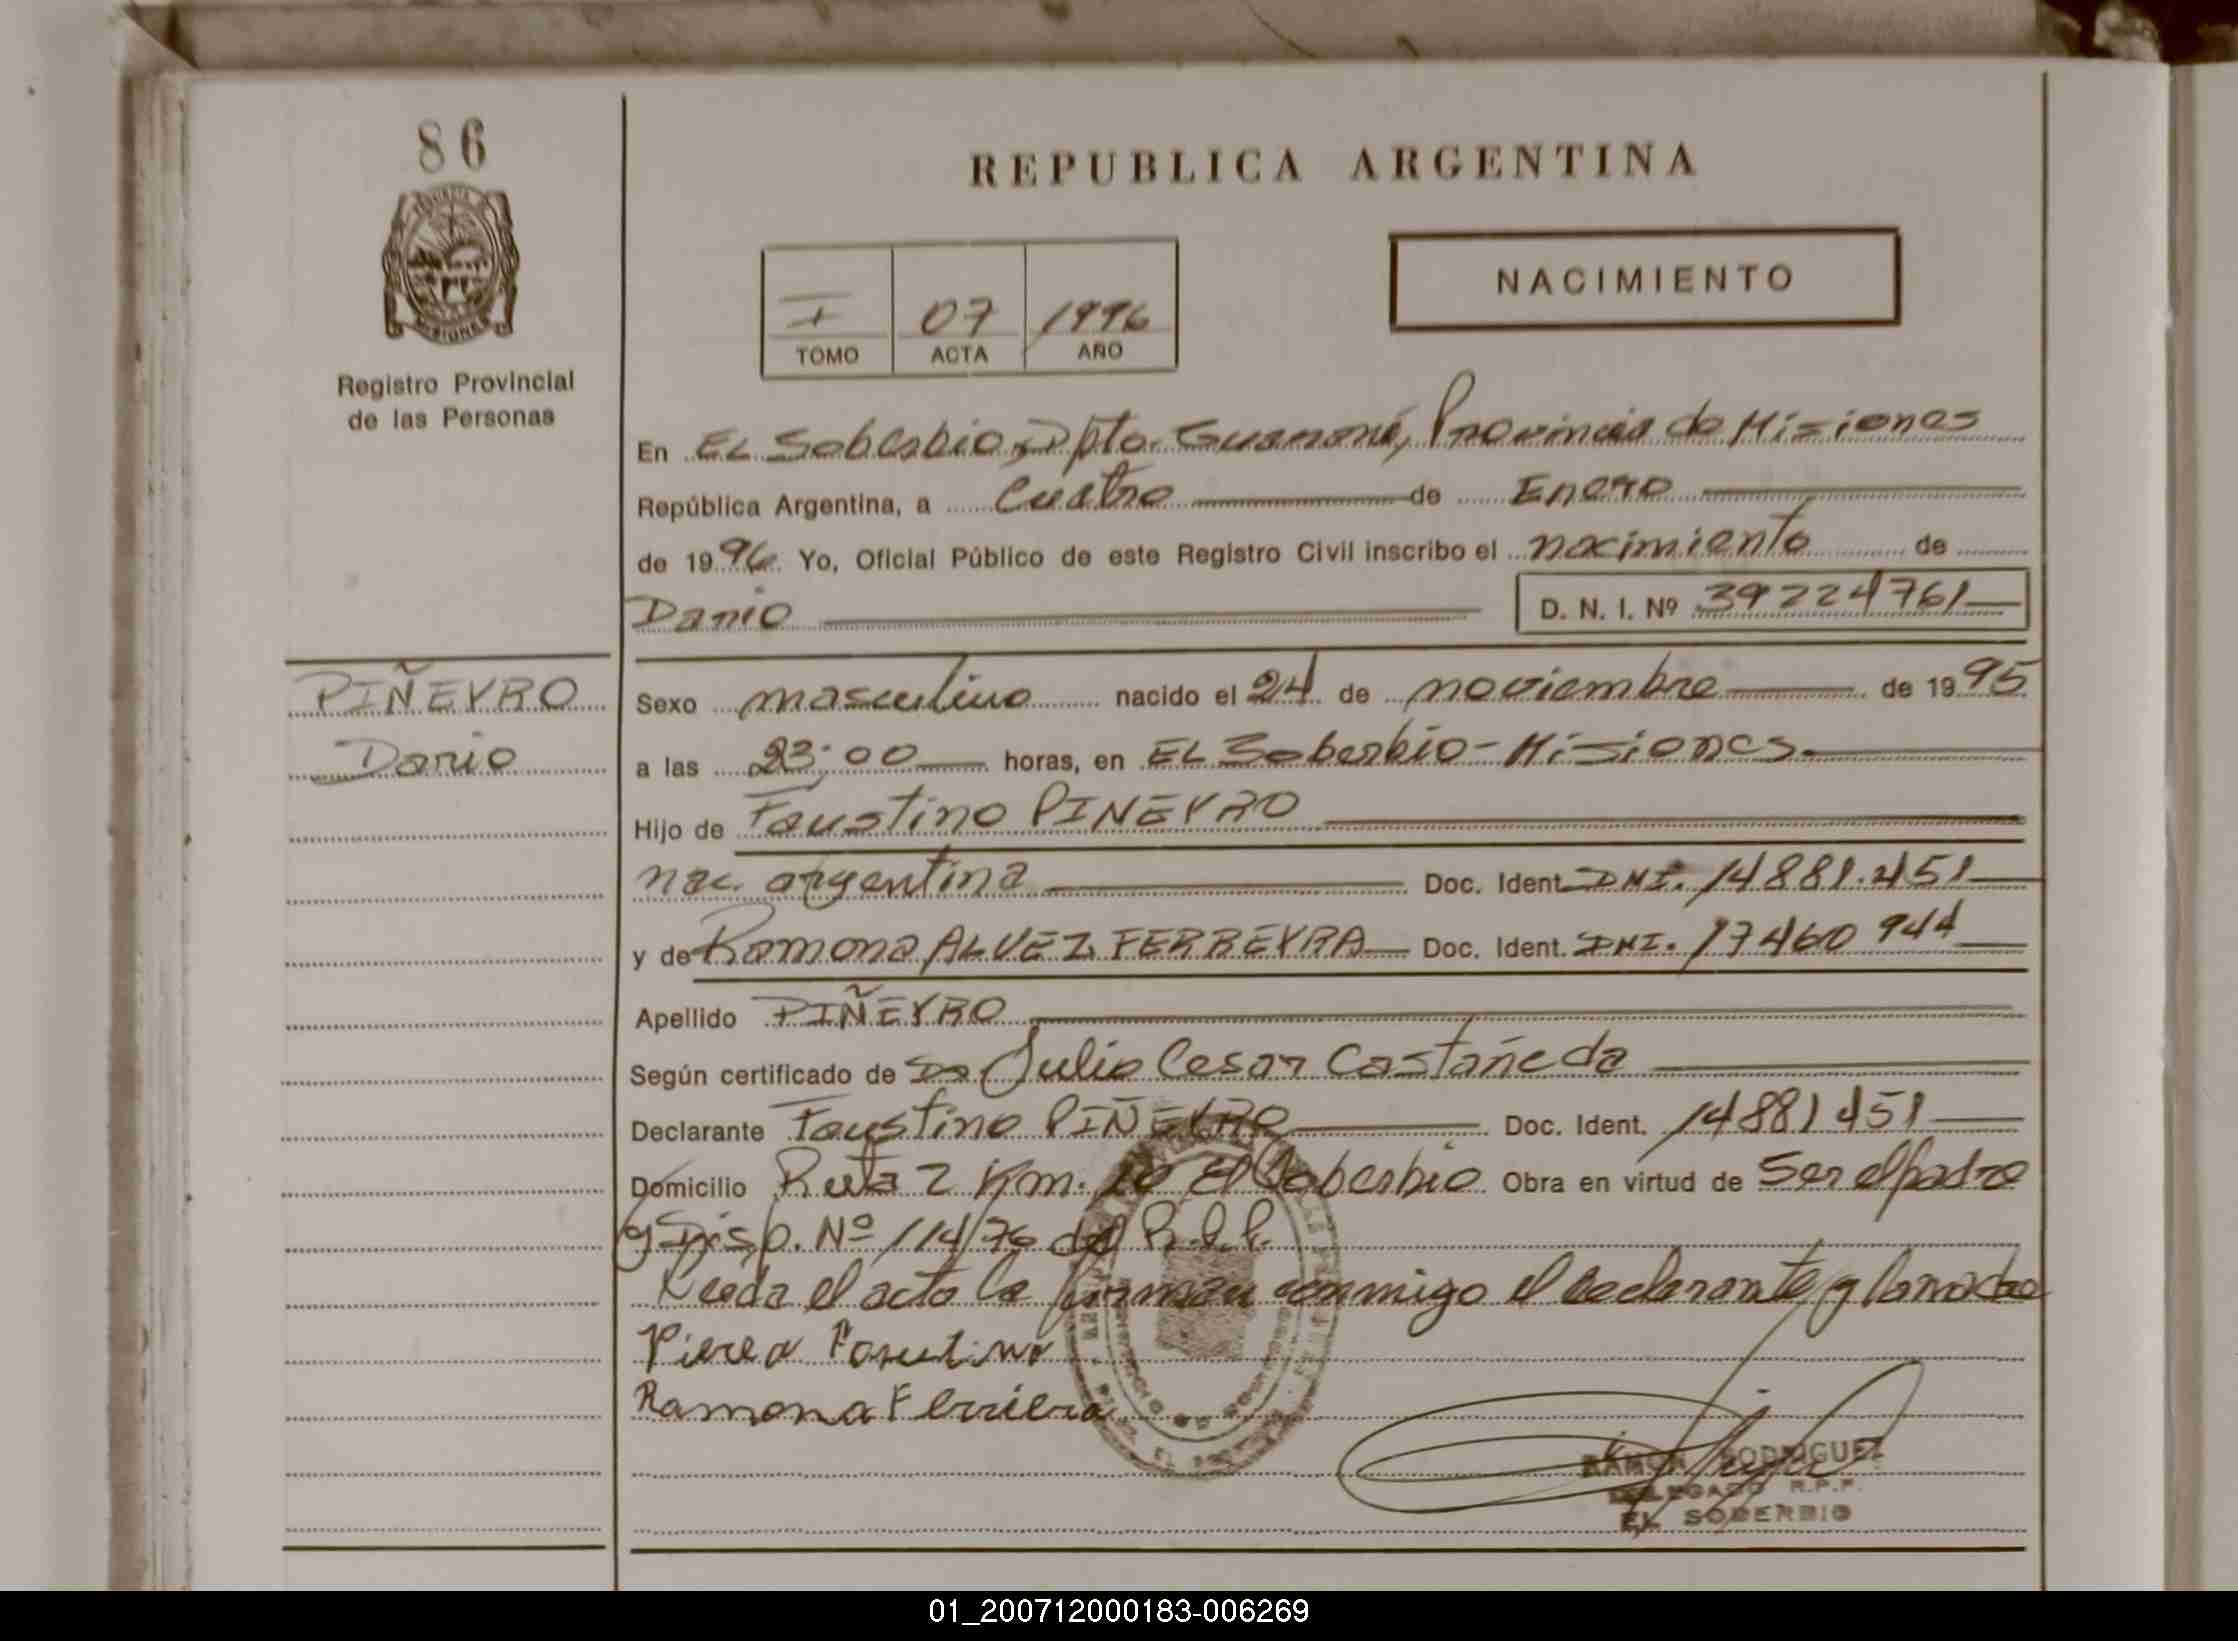 86
Registro Provincial
de las Personas
REPUBLICA ARGENTINA
NACIMIENTO
I 07 1996
TOMO ACTA AÑO
En EL Soberbio, Dpto. Guaraní, Provincia de Misiones
República Argentina, a Cuatro de Enero
de 1996 Yo, Oficial Público de este Registro Civil inscribo el nacimiento de
Dario D. N. I. Nº 39224761
PIÑEYRO
Dario
Sexo masculino nacido el 24 de noviembre de 1995
a las 23:00 horas, en EL Soberbio - Misiones
Hijo de Faustino PIÑEYRO
nac. argentina Doc. Ident. DNI. 14881.451
y de Ramona ALVEZ FERREYRA Doc. Ident. DNI. 17460944
Apellido PIÑEYRO
Según certificado de Dr Julio Cesar Castañeda
Declarante Faustino PIÑEYRO Doc. Ident. 14881451
Domicilio Ruta 2 Km. 10 El Soberbio Obra en virtud de Ser el padre
y Disp. Nº 114/76 del R.P.P.
el acta la firman conmigo el declarante y la madre
Ramona Ferriera
RAMON RODRIGUEZ
DELEGADO R.P.P.
EL SOBERBIO
01_200712000183-006269